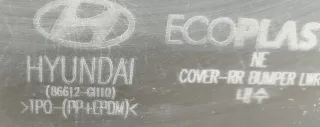 HYUNDAI
(86612-G1110)
>TPO-(PP+EPDM)<
ECOPLAS
NE
COVER-RR BUMPER LWR
내수